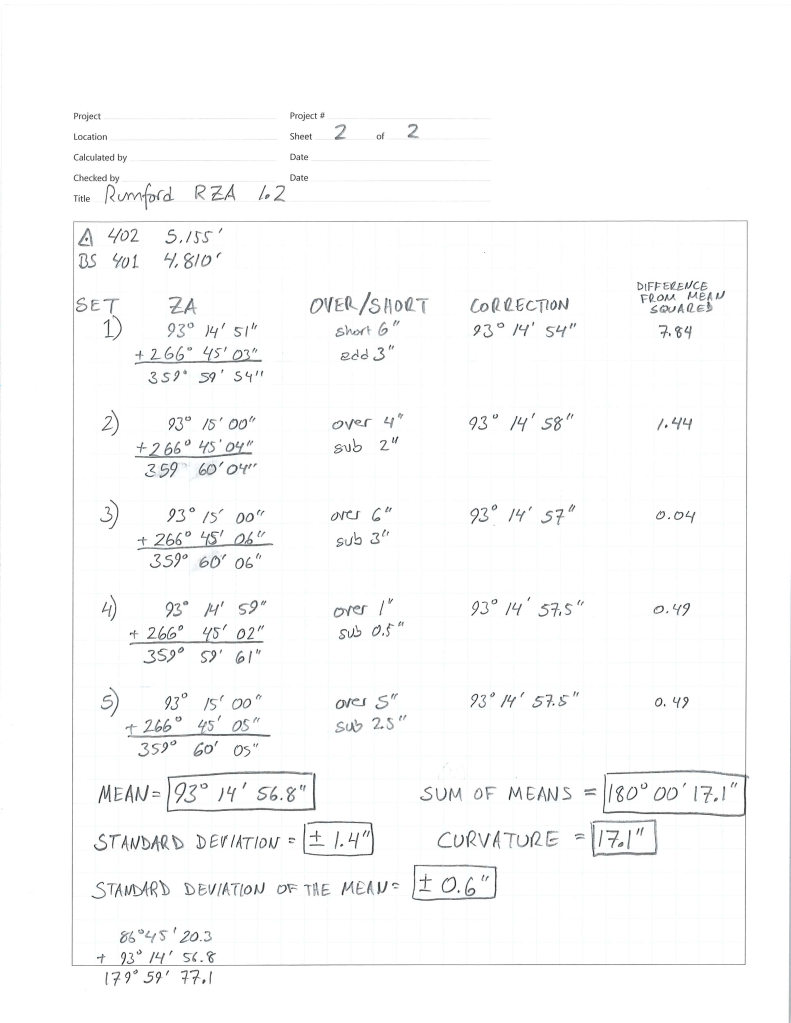 Project Project #
Location Sheet 2 of 2
Calculated by Date
Checked by Date
Title Rumford RZA 1.2
△ 402 5.155'
BS 401 4.810'
SET ZA OVER/SHORT CORRECTION DIFFERENCE FROM MEAN SQUARED
1) 93° 14' 51" short 6" 93° 14' 54" 7.84
+ 266° 45' 03" add 3"
359° 59' 54"
2) 93° 15' 00" over 4" 93° 14' 58" 1.44
+ 266° 45' 04" sub 2"
359° 60' 04"
3) 93° 15' 00" over 6" 93° 14' 57" 0.04
+ 266° 45' 06" sub 3"
359° 60' 06"
4) 93° 14' 59" over 1" 93° 14' 57.5" 0.49
+ 266° 45' 02" sub 0.5"
359° 59' 61"
5) 93° 15' 00" over 5" 93° 14' 57.5" 0.49
+ 266° 45' 05" sub 2.5"
359° 60' 05"
MEAN = 93° 14' 56.8" SUM OF MEANS = 180° 00' 17.1"
STANDARD DEVIATION = ± 1.4" CURVATURE = 17.1"
STANDARD DEVIATION OF THE MEAN = ± 0.6"
86° 45' 20.3
+ 93° 14' 56.8
179° 59' 77.1